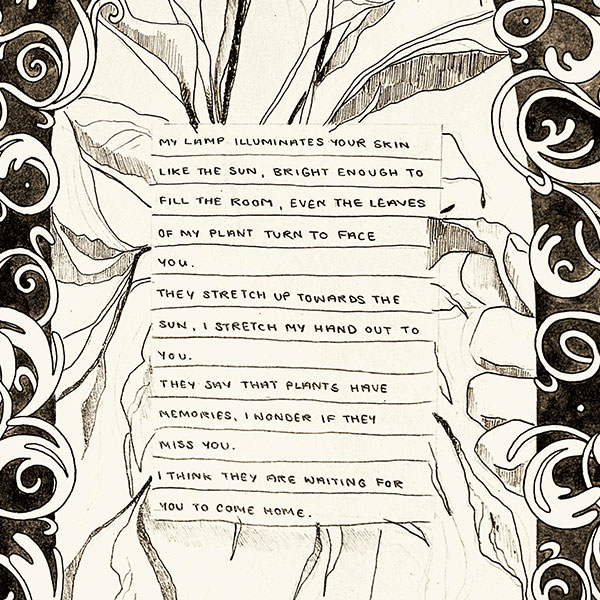 MY LAMP ILLUMINATES YOUR SKIN
LIKE THE SUN, BRIGHT ENOUGH TO
FILL THE ROOM, EVEN THE LEAVES
OF MY PLANT TURN TO FACE
YOU.
THEY STRETCH UP TOWARDS THE
SUN, I STRETCH MY HAND OUT TO
YOU.
THEY SAY THAT PLANTS HAVE
MEMORIES, I WONDER IF THEY
MISS YOU.
I THINK THEY ARE WAITING FOR
YOU TO COME HOME.